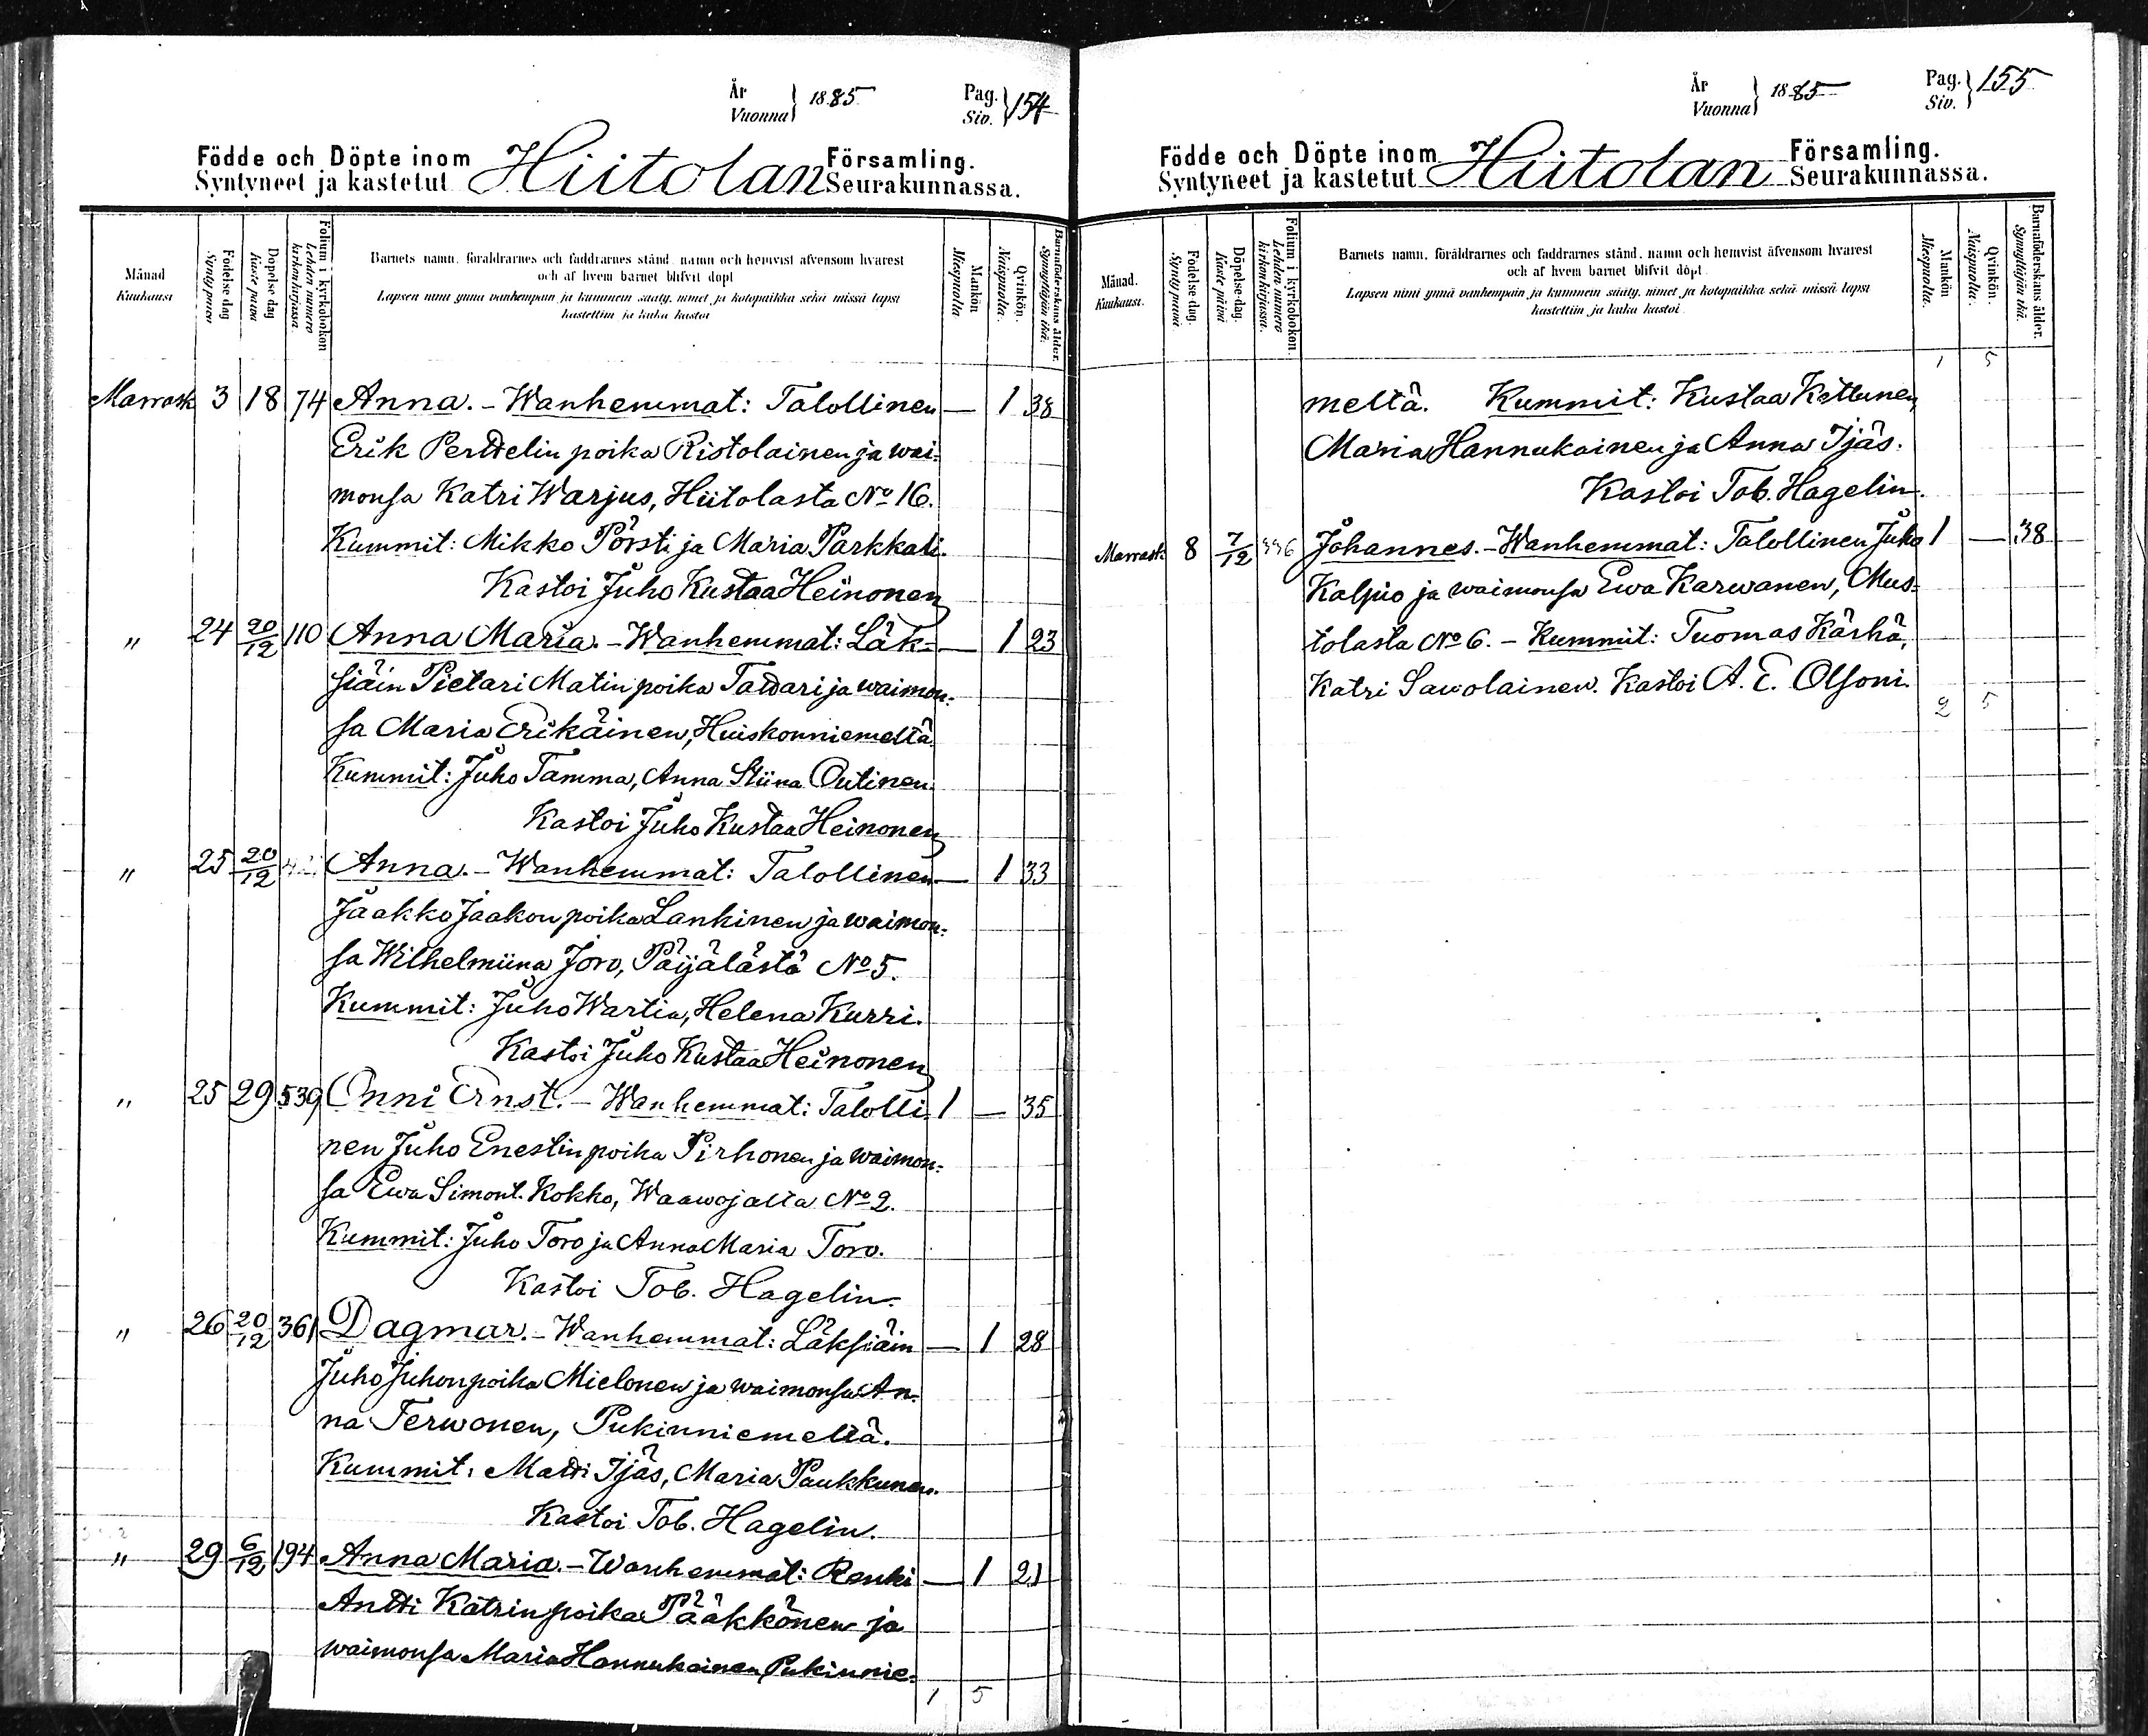 År
Vuonna } 1885
Pag.
Siv. } 154
Födde och Döpte inom Hiitolan Församling.
Syntyneet ja kastetut Seurakunnassa.
Månad
Kuukausi
Födelse dag
Synty päivä
Döpelse dag
Kaste päivä
Folium i kyrkoboken
Lehden numero kirkonkirjassa.
Barnets namn, föräldrarnes och faddrarnes stånd, namn och hemvist äfvensom hvarest
och af hvem barnet blifvit döpt
Lapsen nimi ynnä vanhempain ja kummein sääty, nimet ja kotopaikka sekä missä lapsi
kastettiin ja kuka kastoi
Mankön
Miespuolta
Qvinkön.
Naispuolta.
Barnaföderskans ålder.
Synnyttäjän ikä.
Marrask 3 18 74 Anna. - Wanhemmat: Talollinen — 1 38
Erik Perttelin poika Ristolainen ja wai-
monsa Katri Warjus, Hiitolasta No 16.
Kummit: Mikko Pörsti ja Maria Parkkali.
Kastoi Juho Kustaa Heinonen
" 24 20/12 110 Anna Maria. - Wanhemmat: Läk- — 1 23
siäin Pietari Matin poika Tattari ja waimon-
sa Maria Erikäinen, Huiskonniemeltä.
Kummit: Juho Tamma, Anna Stiina Outinen.
Kastoi Juho Kustaa Heinonen
" 25 20/12 Anna. - Wanhemmat: Talollinen — 1 33
Jaakko Jaakon poika Lankinen ja waimon-
sa Wilhelmiina Joro, Päijälästä No 5.
Kummit: Juho Wartia, Helena Kurri.
Kastoi Juho Kustaa Heinonen
" 25 29 539 Onni Ernst. - Wanhemmat: Talolli- 1 — 35
nen Juho Enestin poika Pirhonen ja waimon-
sa Ewa Simont. Kokko, Waawojalta No 2.
Kummit: Juho Toro ja Anna Maria Toro.
Kastoi Tob. Hagelin.
" 26 20/12 361 Dagmar. - Wanhemmat: Läksiäin — 1 28
Juho Juhon poika Mielonen ja waimonsa An-
na Terwonen, Pukinniemeltä.
Kummit: Matti Ijäs, Maria Paukkunen.
Kastoi Tob. Hagelin.
" 29 6/12 194 Anna Maria. - Wanhemmat: Renki — 1 21
Antti Katrin poika Pääkkönen ja
waimonsa Maria Hannukainen Pukinnie-
1 5
År
Vuonna } 1885
Pag.
Siv. } 155
Födde och Döpte inom Hiitolan Församling.
Syntyneet ja kastetut Seurakunnassa.
Månad.
Kuukausi.
Födelse dag.
Synty päivä
Döpelse-dag.
Kaste päivä
Folium i kyrkoboken.
Lehden numero kirkonkirjassa.
Barnets namn, föräldrarnes och faddrarnes stånd, namn och hemvist äfvensom hvarest
och af hvem barnet blifvit döpt.
Lapsen nimi ynnä vanhempain ja kummein sääty, nimet ja kotopaikka sekä missä lapsi
kastettiin ja kuka kastoi
Mankön
Miespuolta.
Qvinkön.
Naispuolta.
Barnaföderskans ålder.
Synnyttäjän ikä.
1 5
meltä. Kummit: Kustaa Kittunen,
Maria Hannukainen ja Anna Ijäs.
Kastoi Tob. Hagelin.
Marrask 8 7/12 Johannes. - Wanhemmat: Talollinen Juho 1 — 38
Kalpio ja waimonsa Ewa Karwanen, Mus-
tolasta No 6. - Kummit: Tuomas Kärhä,
Katri Sawolainen. Kastoi A. E. Olsoni.
2 5